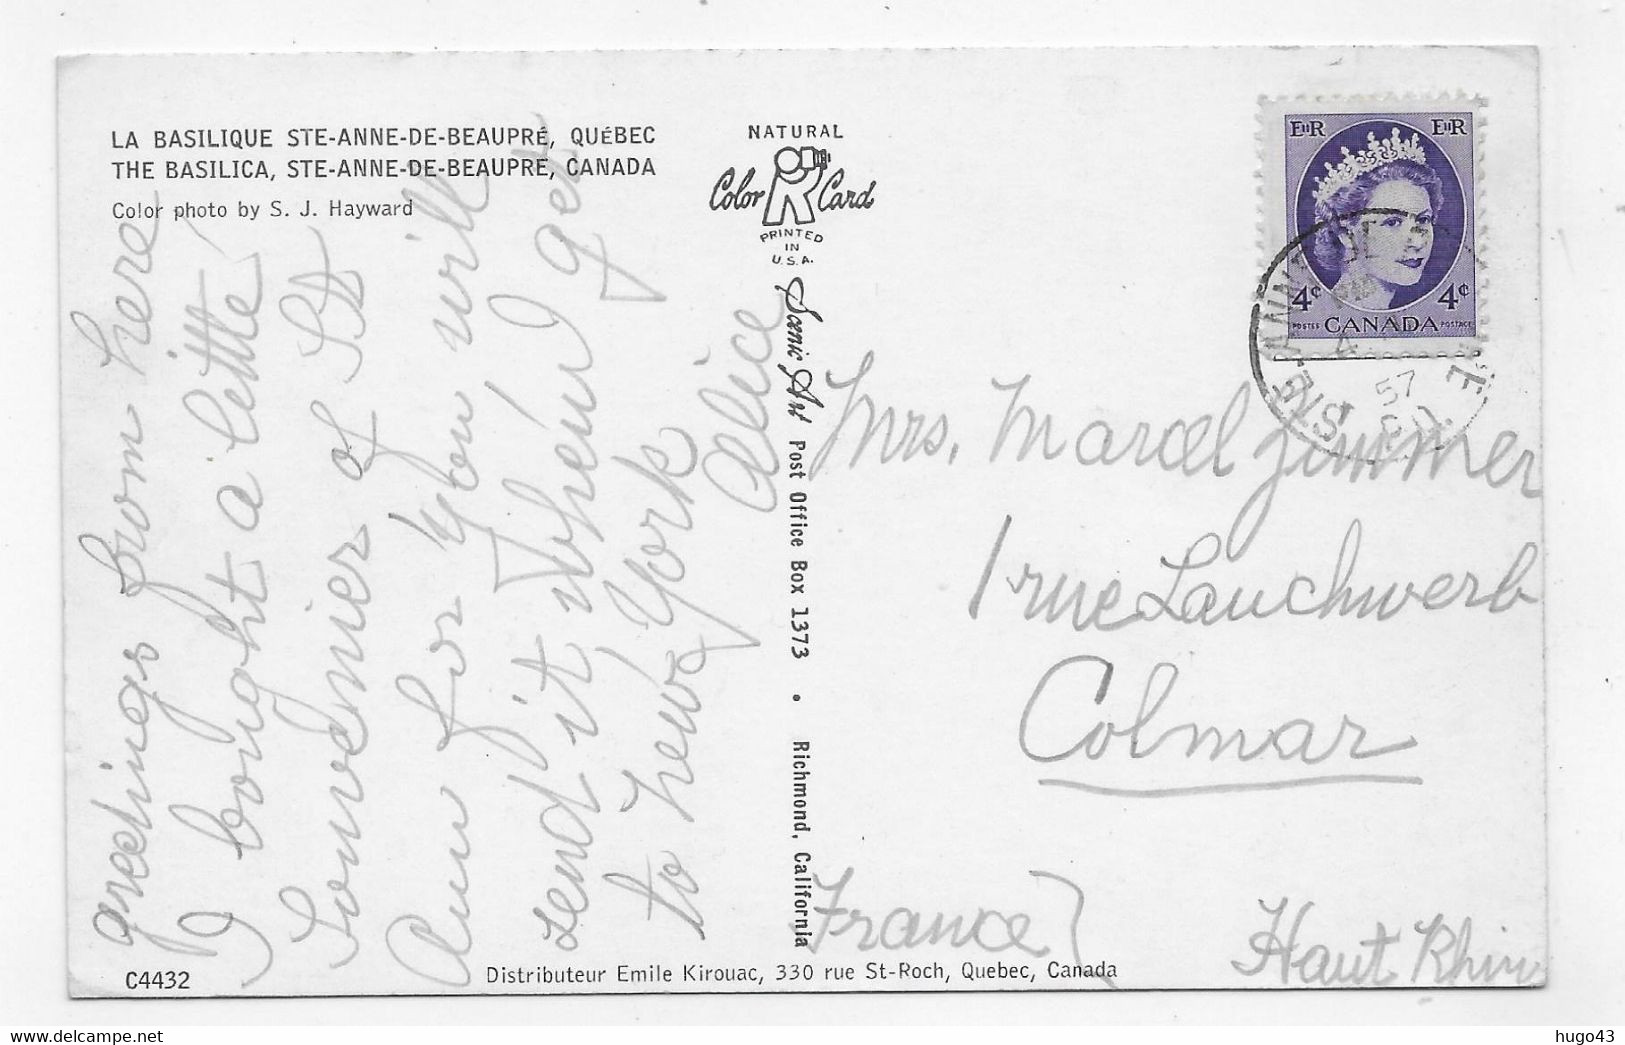 LA BASILIQUE STE-ANNE-DE-BEAUPRÉ, QUÉBEC
THE BASILICA, STE-ANNE-DE-BEAUPRE, CANADA
Color photo by S. J. Hayward
greetings from here
I bought a little
Souvenier of St
Ann for you will
send it when I get
to New York
Alice
C4432
NATURAL
Color Card
PRINTED
IN
U.S.A.
Scenic Art Post Office Box 1373 • Richmond, California
Distributeur Emile Kirouac, 330 rue St-Roch, Quebec, Canada
EIIR EIIR
4¢ 4¢
POSTES CANADA POSTAGE
STE-ANNE DE
PM
4
57
Mrs. Marcel Zimmer
1 rue Lauchwerb
Colmar
France
Haut Rhin
hugo43